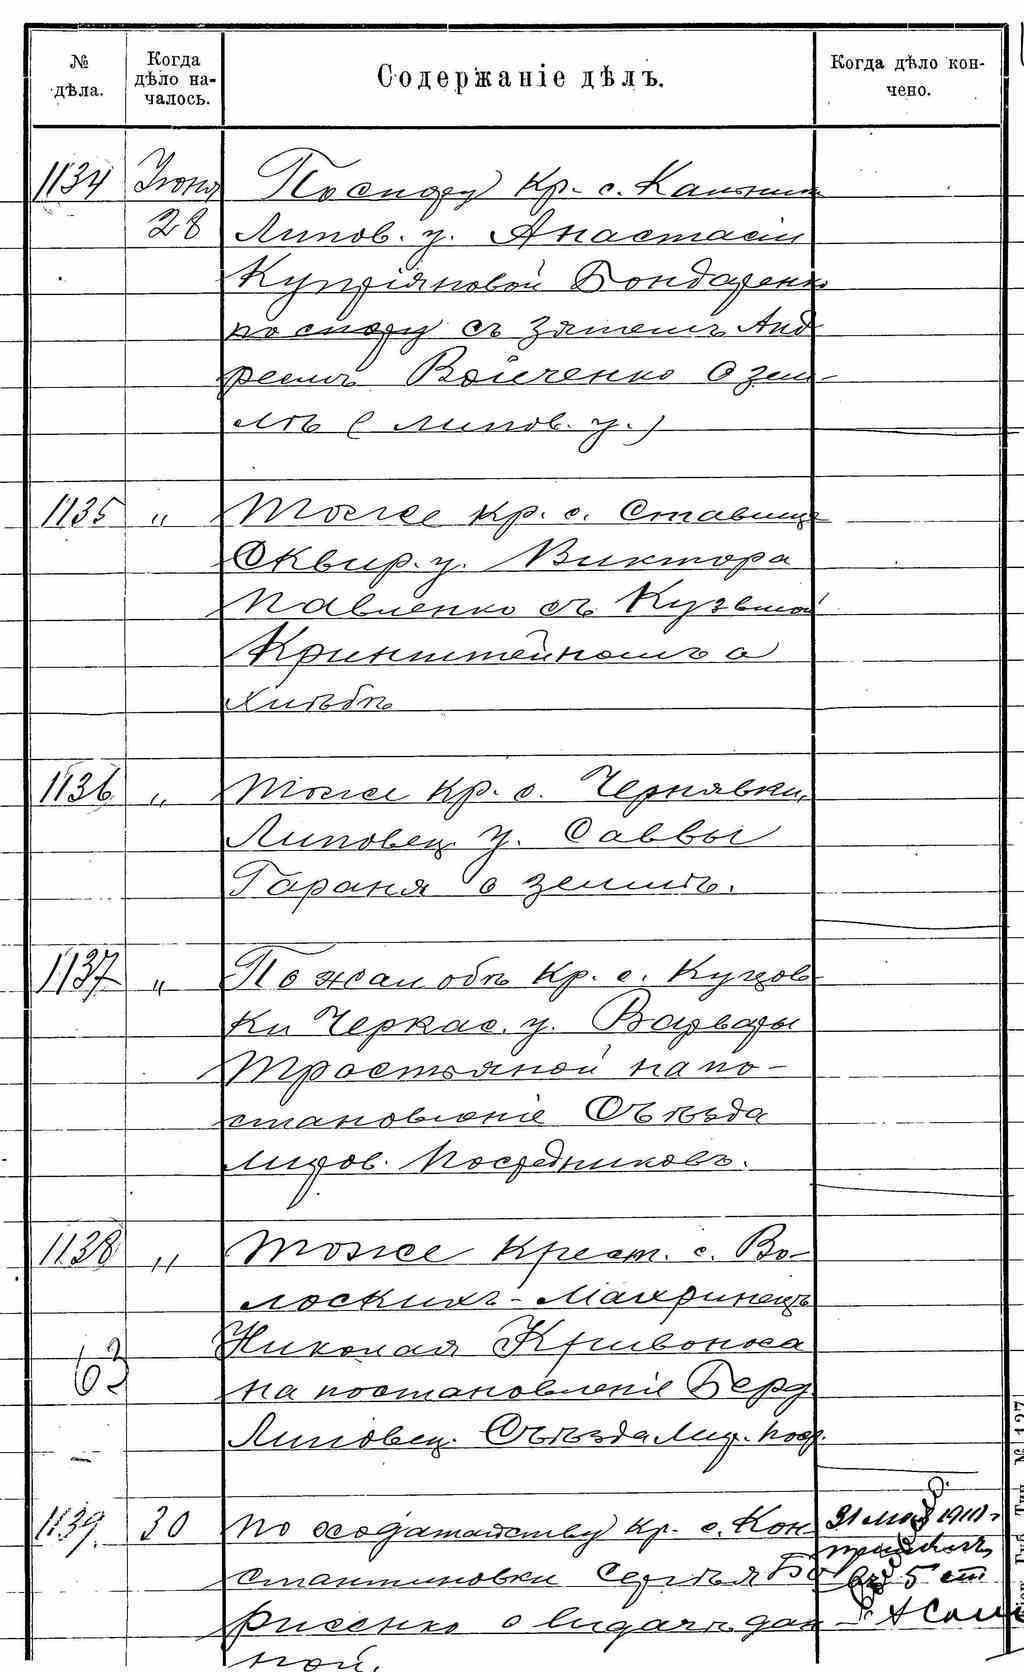 № дѣла.
Когда дѣло на-
чалось.
Содержаніе дѣлъ.
Когда дѣло кон-
чено.
1134 Іюня По спору кр. с.
28 Липов. у. Анастасіи
Купріяновой Бондаренко
по спору съ зятемъ Анд
реемъ Войченко о зем-
лѣ (Липов. у.)
1135 " Тоже кр. с. Ставище
Сквир. у. Виктора
Павленко съ Кузьмой
Кринштейномъ о
хлѣбѣ
1136 " Тоже кр. с. Чернявки,
Липовец. у. Саввы
Гараня о землѣ.
1137 " По жалобѣ кр. с. Куцов-
ки Черкас. у. Варвары
Тростяной на по-
становленіе Съѣзда
Миров. Посредниковъ.
1138 " Тоже крест. с. Во-
лоскихъ-Махринецъ
Николая Кривоноса
63 на постановленіе Берд.
Липовец. Съѣзда Мир. Поср.
1139. 30 По ходатайству кр. с. Кон- 31 мая 1911 г.
стантиновки Сергѣя Бо 5 ст
рисенко о выдачѣ дан-
ной.